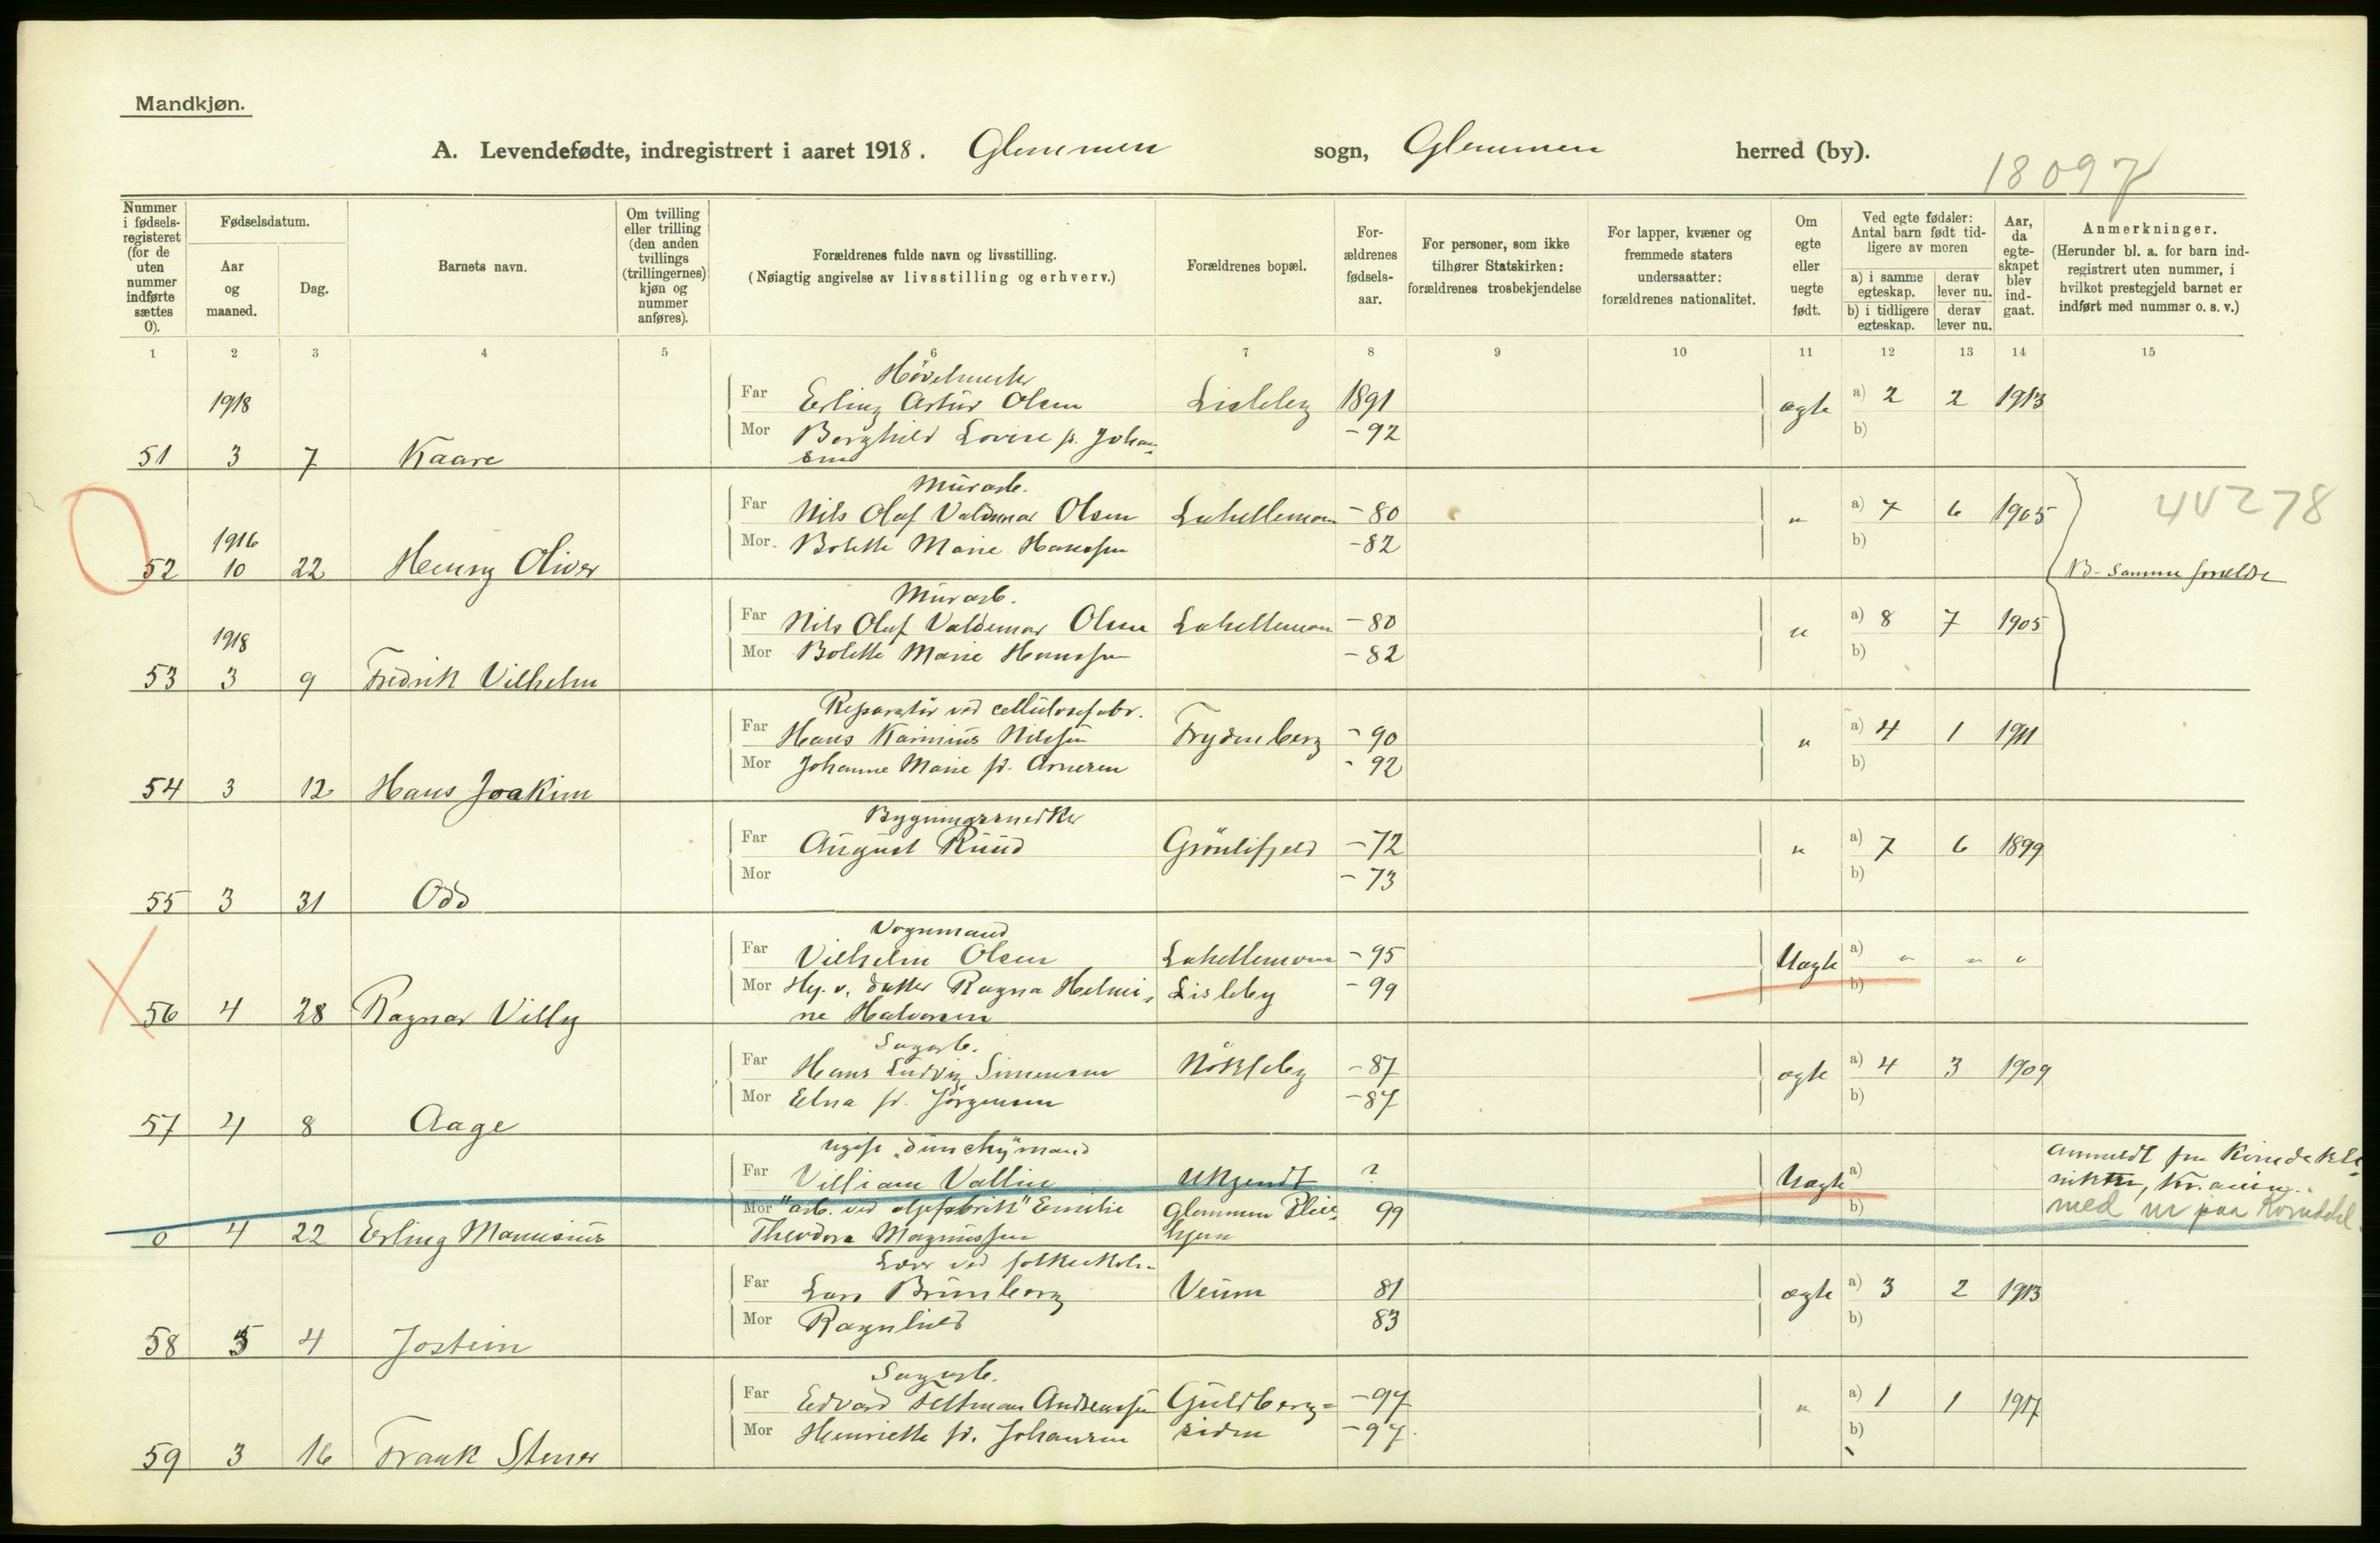 Mandkjøn.
A. Levendefødte, indregistrert i aaret 1918. Glemmen sogn, Glemmen herred (by).
18097
Nummer i fødsels-registeret (for de uten nummer indførte sættes 0).
Fødselsdatum.
Aar og maaned.
Dag.
Barnets navn.
Om tvilling eller trilling (den anden tvillings (trillingernes) kjøn og nummer anføres).
Forældrenes fulde navn og livsstilling.
(Nøiagtig angivelse av livsstilling og erhverv.)
Forældrenes bopæl.
For-ældrenes fødsels-aar.
For personer, som ikke tilhører Statskirken: forældrenes trosbekjendelse
For lapper, kvæner og fremmede staters undersaatter: forældrenes nationalitet.
Om egte eller uegte født.
Ved egte fødsler: Antal barn født tid-ligere av moren
a) i samme egteskap. derav lever nu.
b) i tidligere egteskap. derav lever nu.
Aar, da egte-skapet blev ind-gaat.
Anmerkninger.
(Herunder bl. a. for barn ind-registrert uten nummer, i hvilket prestegjeld barnet er indført med nummer o. s. v.)
1 2 3 4 5 6 7 8 9 10 11 12 13 14 15
Høvelmester
1918 Far Erling Artur Olsen Lisleby 1891 ægte a) 2 2 1913
Mor Borghild Lovise f. Johan- - 92 b)
51 3 7 Kaare sen
Murarb.
Far Nils Olaf Valdemar Olsen Lahellemoen - 80 " a) 7 6 1905 44278
1916 Mor Bolette Marie Hanssen - 82 b)
52 10 22 Henry Oliver B- samme foreldre
Murarb.
1918 Far Nils Olaf Valdemar Olsen Lahellemoen - 80 " a) 8 7 1905
Mor Bolette Marie Hanssen - 82 b)
53 3 9 Fredrik Vilhelm
Reparatør ved cellulosefabr.
Far Hans Karinius Nilssen Frydenberg - 90 " a) 4 1 1911
Mor Johanne Marie f. Arnesen - 92 b)
54 3 12 Hans Joakim
Bygningssnedker
Far August Ruud Grønlifjeld - 72 " a) 7 6 1899
Mor - 73 b)
55 3 31 Odd
Vognmand
Far Vilhelm Olsen Lahellemoen - 95 Uægte a) " " "
Mor Hj. v. datter Ragna Helmi- Lisleby - 99 b)
56 4 28 Ragnar Villy ne Halvorsen
Sagarb.
Far Hans Ludvig Simensen Nøkleby - 87 ægte a) 4 3 1909
Mor Elna f. Jørgensen - 87 b)
57 4 8 Aage
ugift "dunckymand"
Far Villiam Vallin Ukjendt ? Uægte a) anmeldt fra Kvindekli-
Mor "arb. ved oljefabrik" Emilie Glemmen Pleie- 99 b) nikken, Kr.ania.
0 4 22 Erling Manusius Theodora Magnussen hjem med nr paa Kvindekl.
Lærer ved folkeskolen
Far Lars Brunborg Veum 81 ægte a) 3 2 1913
Mor Ragnhild 83 b)
58 5 4 Jostein
Sagarb.
Far Edvard Feltman Andreassen Guldberg- - 97 " a) 1 1 1917
Mor Henriette f. Johansen siden - 97 b)
59 3 16 Frank Stener